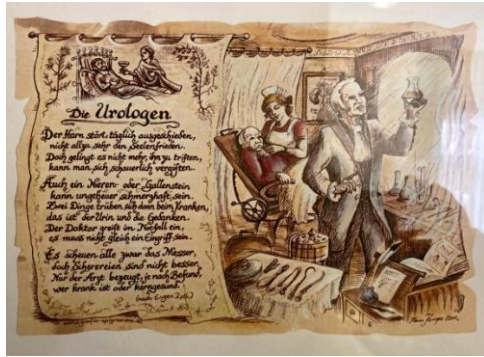 Die Urologen
Der Harn stört, täglich ausgeschieden,
nicht allzu sehr den Seelenfrieden.
Doch gelingt es nicht mehr, ihn zu triften,
kann man sich schauerlich vergiften.
Auch ein Nieren- oder Gallenstein
kann ungeheuer schmerzhaft sein.
Zwei Dinge trüben sich beim Kranken,
das ist der Urin und die Gedanken.
Der Doktor greift im Notfall ein,
es muss nicht gleich ein Eingriff sein.
Es scheuen alle zwar das Messer,
doch Scherereien sind nicht besser.
Nur der Arzt bezeugt, je nach Befund,
wer krank ist oder kerngesund.
(nach Eugen Roth)